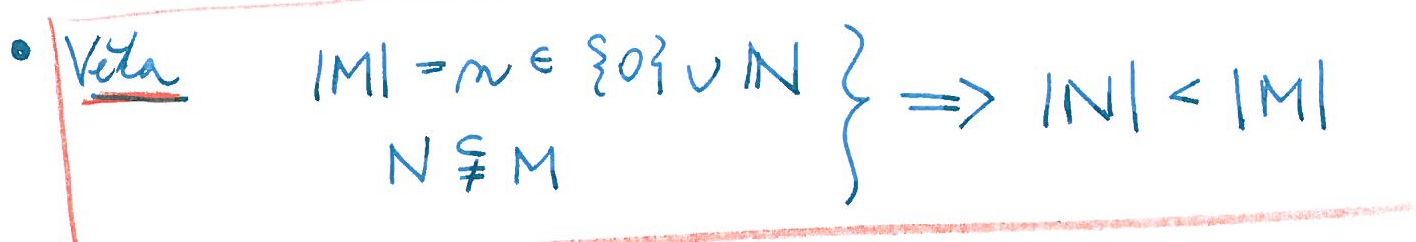 • Věta |M| = n ∈ {0} ∪ ℕ } ⟹ |N| < |M|
N ⫋ M